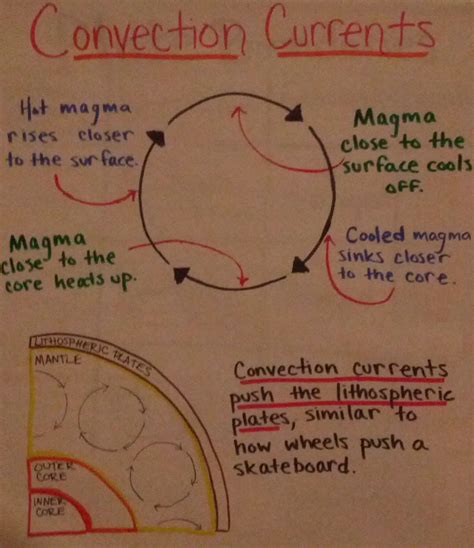 Convection Currents
Hot magma
rises closer
to the surface.
Magma
close to the
surface cools
off.
Magma
close to the
core heats up.
Cooled magma
sinks closer
to the core.
LITHOSPHERIC PLATES
MANTLE
OUTER
CORE
INNER
CORE
Convection currents
push the lithospheric
plates, similar to
how wheels push a
skateboard.